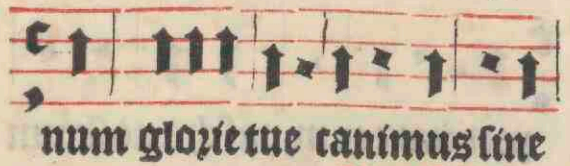 num glorie tue canimus sine